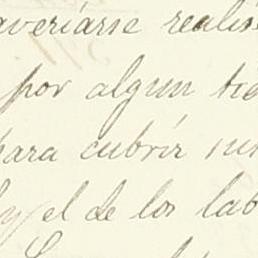 averiarse realis
por algun tie
para cubrir
y el de los lab